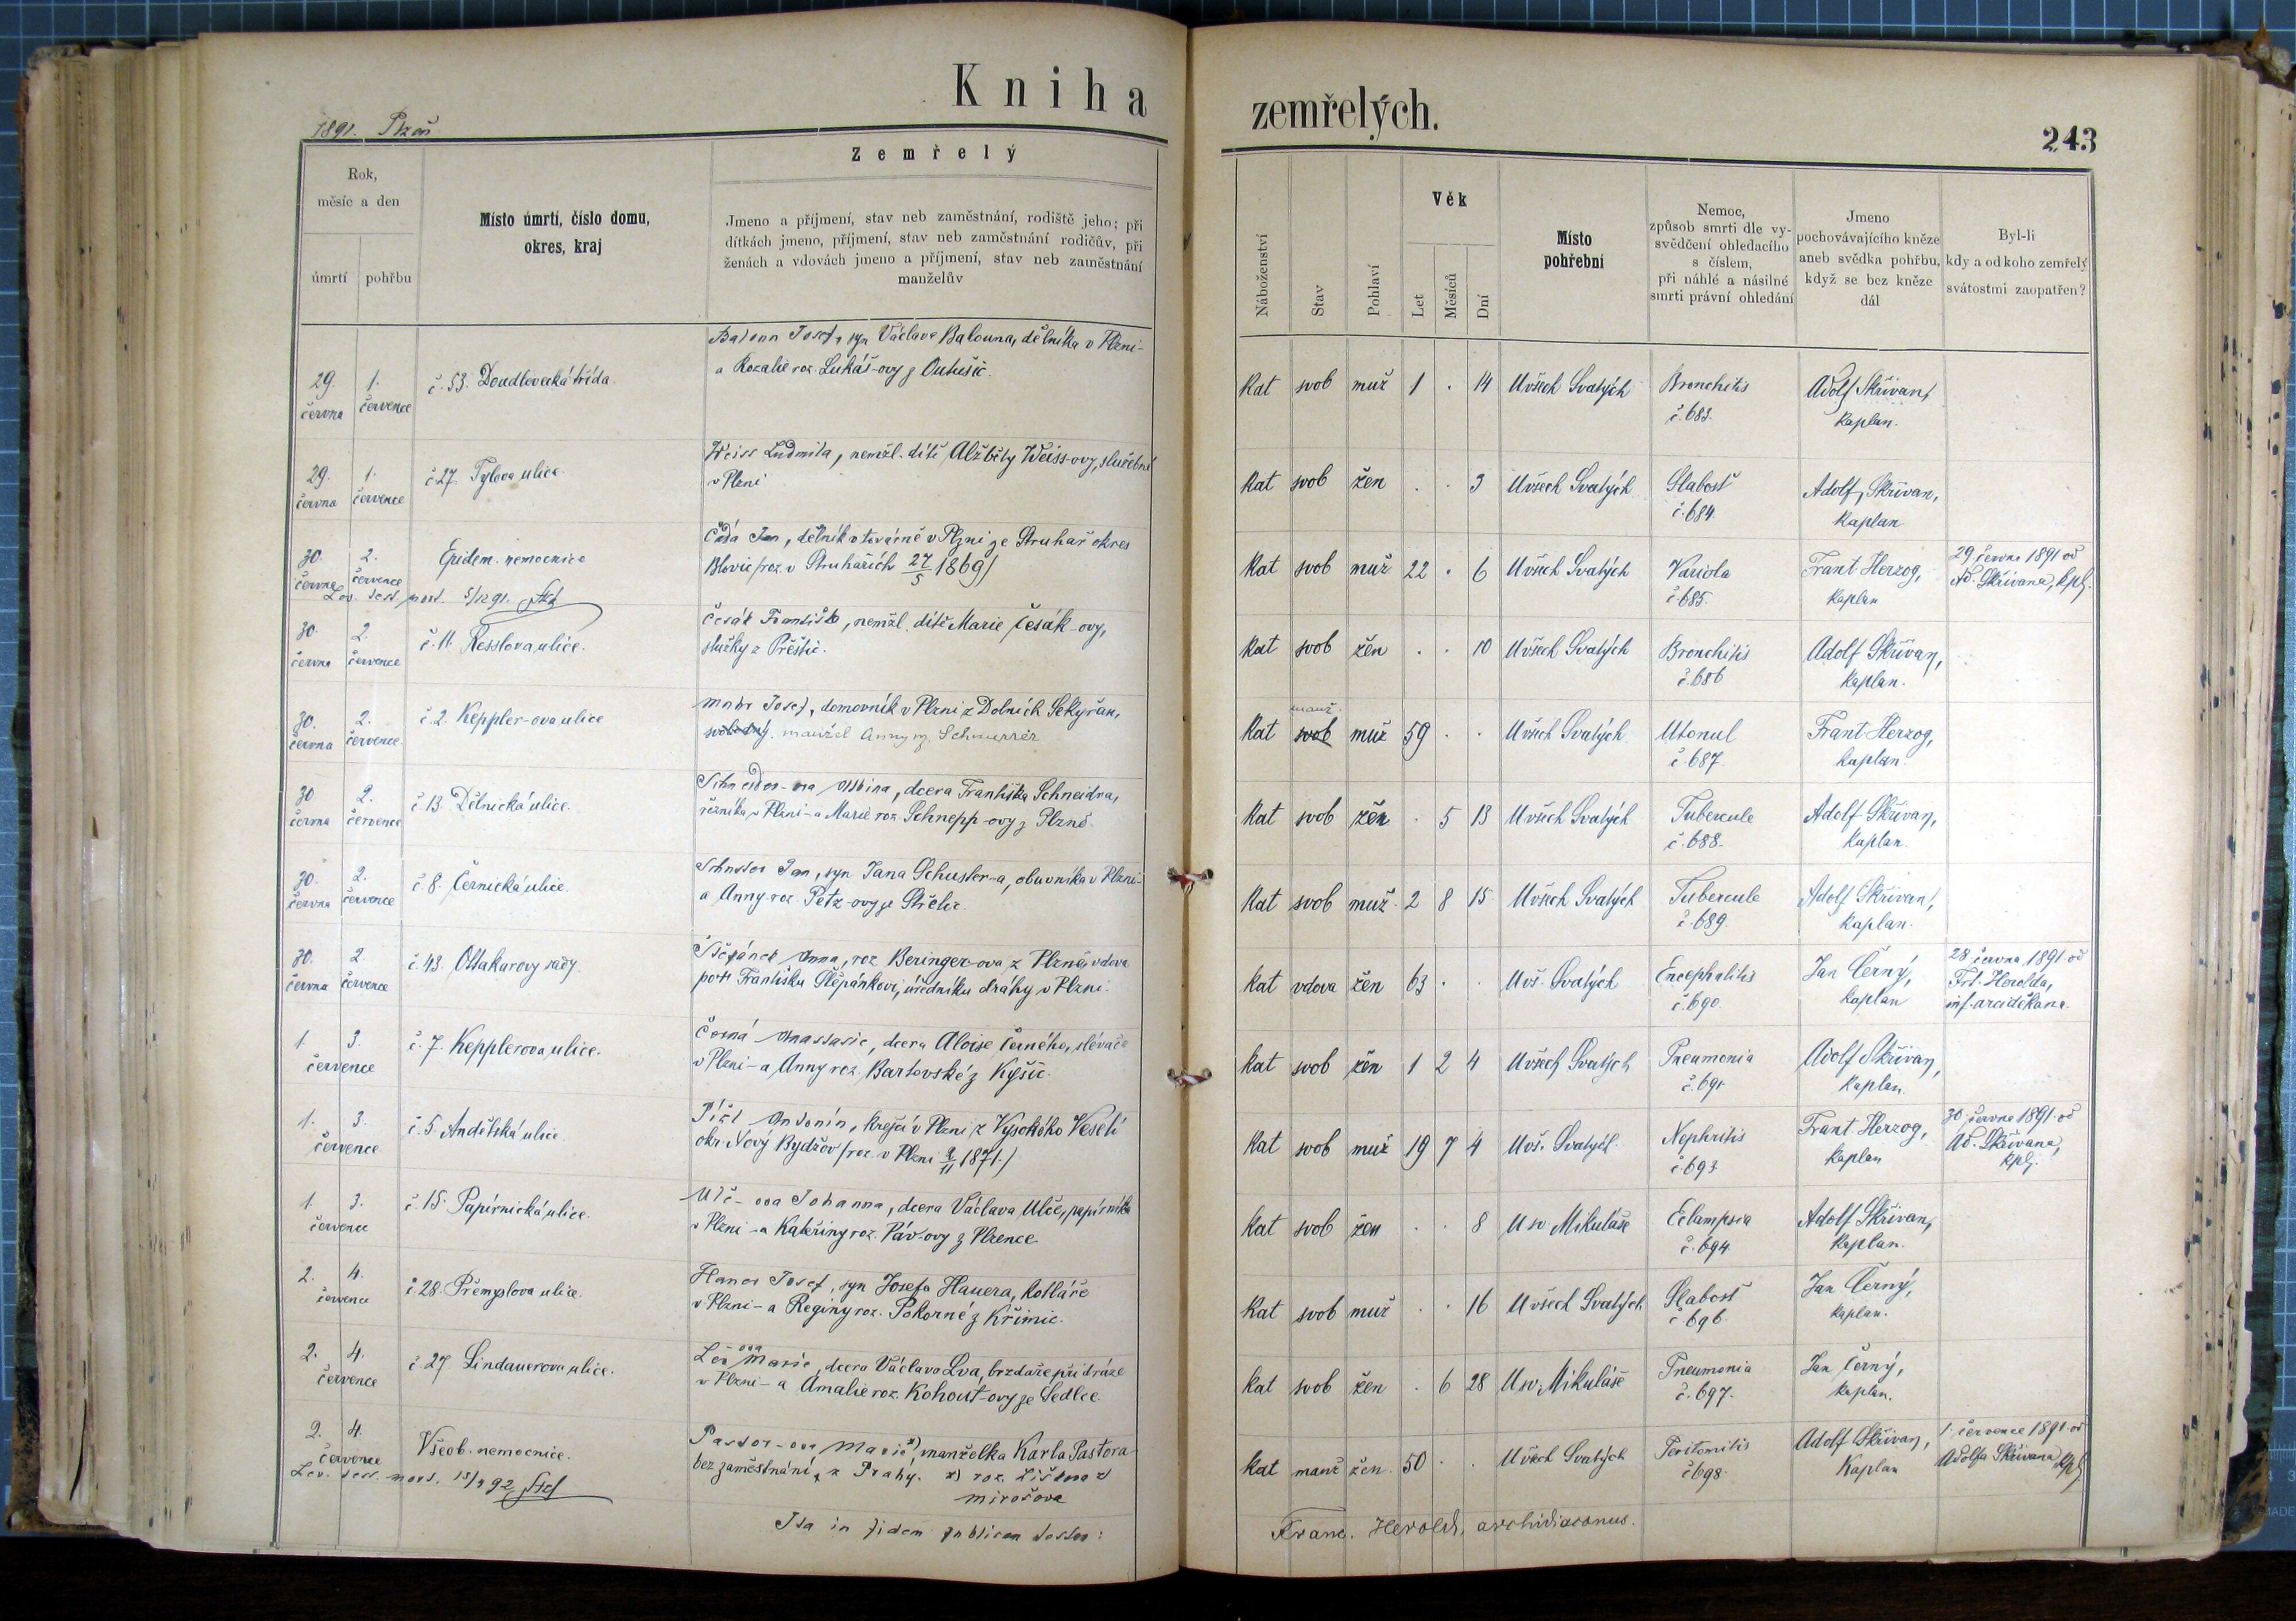 Kniha
zemřelých.
1891. Plzeň
243
Rok,
měsíc a den
úmrtí
pohřbu
Místo úmrtí, číslo domu,
okres, kraj
Zemřelý
Jmeno a příjmení, stav neb zaměstnání, rodiště jeho; při
dítkách jmeno, příjmení, stav neb zaměstnání rodičův, při
ženách a vdovách jmeno a příjmení, stav neb zaměstnání
manželův
Náboženství
Stav
Pohlaví
Věk
Let
Měsíců
Dní
Místo
pohřební
Nemoc,
způsob smrti dle vy-
svědčení ohledacího
s číslem,
při náhlé a násilné
smrti právní ohledání
Jmeno
pochovávajícího kněze
aneb svědka pohřbu,
když se bez kněze
dál
Byl-li
kdy a od koho zemřelý
svátostmi zaopatřen?
29. června 1. července č. 53. Doudlevecká třída.
Josef, syn Václava Balouna, dělníka v Plzni-
a Rozalie roz. Lukáš-ovy z
Kat svob muž 1 . 14 U všech Svatých Bronchitis č. 683. Adolf Skřivan, kaplan.
29. června 1. července č. 27. Tylova ulice.
Weiss Ludmila, nemžl. dítě Alžběty Weiss-ovy, služebné
v Plzni
Kat svob žen . . 3 U všech Svatých Slabosť č. 684. Adolf Skřivan, kaplan
30. června 2. července Epidem. nemocnice
Jan, dělník v továrně v Plzni ze Struhař okres
Blovic /roz. v Struhařích 27/5 1869/
Kat svob muž 22 . 6 U všech Svatých Variola č. 685. Frant Herzog, kaplan 29. června 1891 od Ad. Skřivana, kpl.
5/12 91.
30. června 2. července č. 11. Resslova ulice.
Česák Františka, nemžl. dítě Marie Česák-ovy,
služky z Přeštic.
Kat svob žen . . 10 U všech Svatých Bronchitis č. 686 Adolf Skřivan, kaplan.
30. června 2. července č. 2. Keppler-ova ulice
Josef, domovník v Plzni z Dolních Sekyřan,
svobodný. manžel Anny roz. Schnurrer
manž.
Kat svob muž 59 . . U všech Svatých Utonul č. 687. Frant Herzog, kaplan.
30 června 2. července č. 13. Dělnická ulice.
Schneider-ova Albina, dcera Františka Schneidra,
řezníka v Plzni-a Marie roz. Schnepp-ovy z Plzně.
Kat svob žen . 5 13 U všech Svatých Tubercule č. 688. Adolf Skřivan, kaplan.
30. června 2. července č. 8. Černická ulice.
Schuster Jan, syn Jana Schuster-a, obuvníka v Plzni-
a Anny roz. Petz-ovy ze Střelic.
Kat svob muž 2 8 15 U všech Svatých Tubercule č. 689. Adolf Skřivan, kaplan.
30. června 2. července č. 43. Ottakarovy sady.
Štěpánek Anna, roz. Beringer-ova z Plzně, vdova
po † Františku Štěpánkovi, úředníku dráhy v Plzni.
Kat vdova žen 63 . . U vš. Svatých Encephalitis č. 690. Jan Černý, kaplan 28 června 1891 od Frt. Herolda, inf. arciděkana.
1. 3. července č. 7. Kepplerova ulice.
Černá Anastasie, dcera Aloise Černého, slévače
v Plzni-a Anny roz. Bartovské z Kyšic.
Kat svob žen 1 2 4 U všech Svatých Pneumonia č. 691. Adolf Skřivan, kaplan
1. 3. července č. 5 Andělská ulice.
Antonín, krejčí v Plzni z Vysokého Veselí
okr. Nový Bydžov /roz. v Plzni 1871./
Kat svob muž 19 7 4 U vš. Svatých. Nephritis č. 693. Frant Herzog, kaplan 30. června 1891. od Ad. Skřivana, kpl.
1. 3. července č. 15. Papírnická ulice.
Ulč-ova Johanna, dcera Václava Ulče, papírníka
v Plzni-a Kateřiny roz. Páv-ovy z Plzence.
Kat svob žen . . 8 U sv. Mikuláše Eclampsia č. 694. Adolf Skřivan, kaplan.
2. 4. července č. 28. Přemyslova ulice.
Hauer Josef, syn Josefa Hauera, kotláře
v Plzni-a Reginy roz. Pokorné z Křimic.
Kat svob muž . . 16 U všech Svatých Slabosť č. 696. Jan Černý, kaplan.
2. 4. července č. 27 Lindauerova ulice.
Lev-ova Marie, dcera Václava Lva, brzdaře při dráze
v Plzni-a Amalie roz. Kohout-ovy ze Sedlce.
Kat svob žen . 6 28 U sv. Mikuláše Pneumonia č. 697. Jan Černý, kaplan.
2. 4. července Všeob. nemocnice.
Pastor-ova Marie x), manželka Karla Pastora
bez zaměstnání, z Prahy. x) roz. Lišková z
Mirošova
Kat manž žen. 50 . . U všech Svatých Peritonitis č. 698. Adolf Skřivan, Kaplan 1. července 1891 od Adolfa Skřivana, kpl.
Ita in fidem publicam testor:
Franc. Herold, archidiaconus.